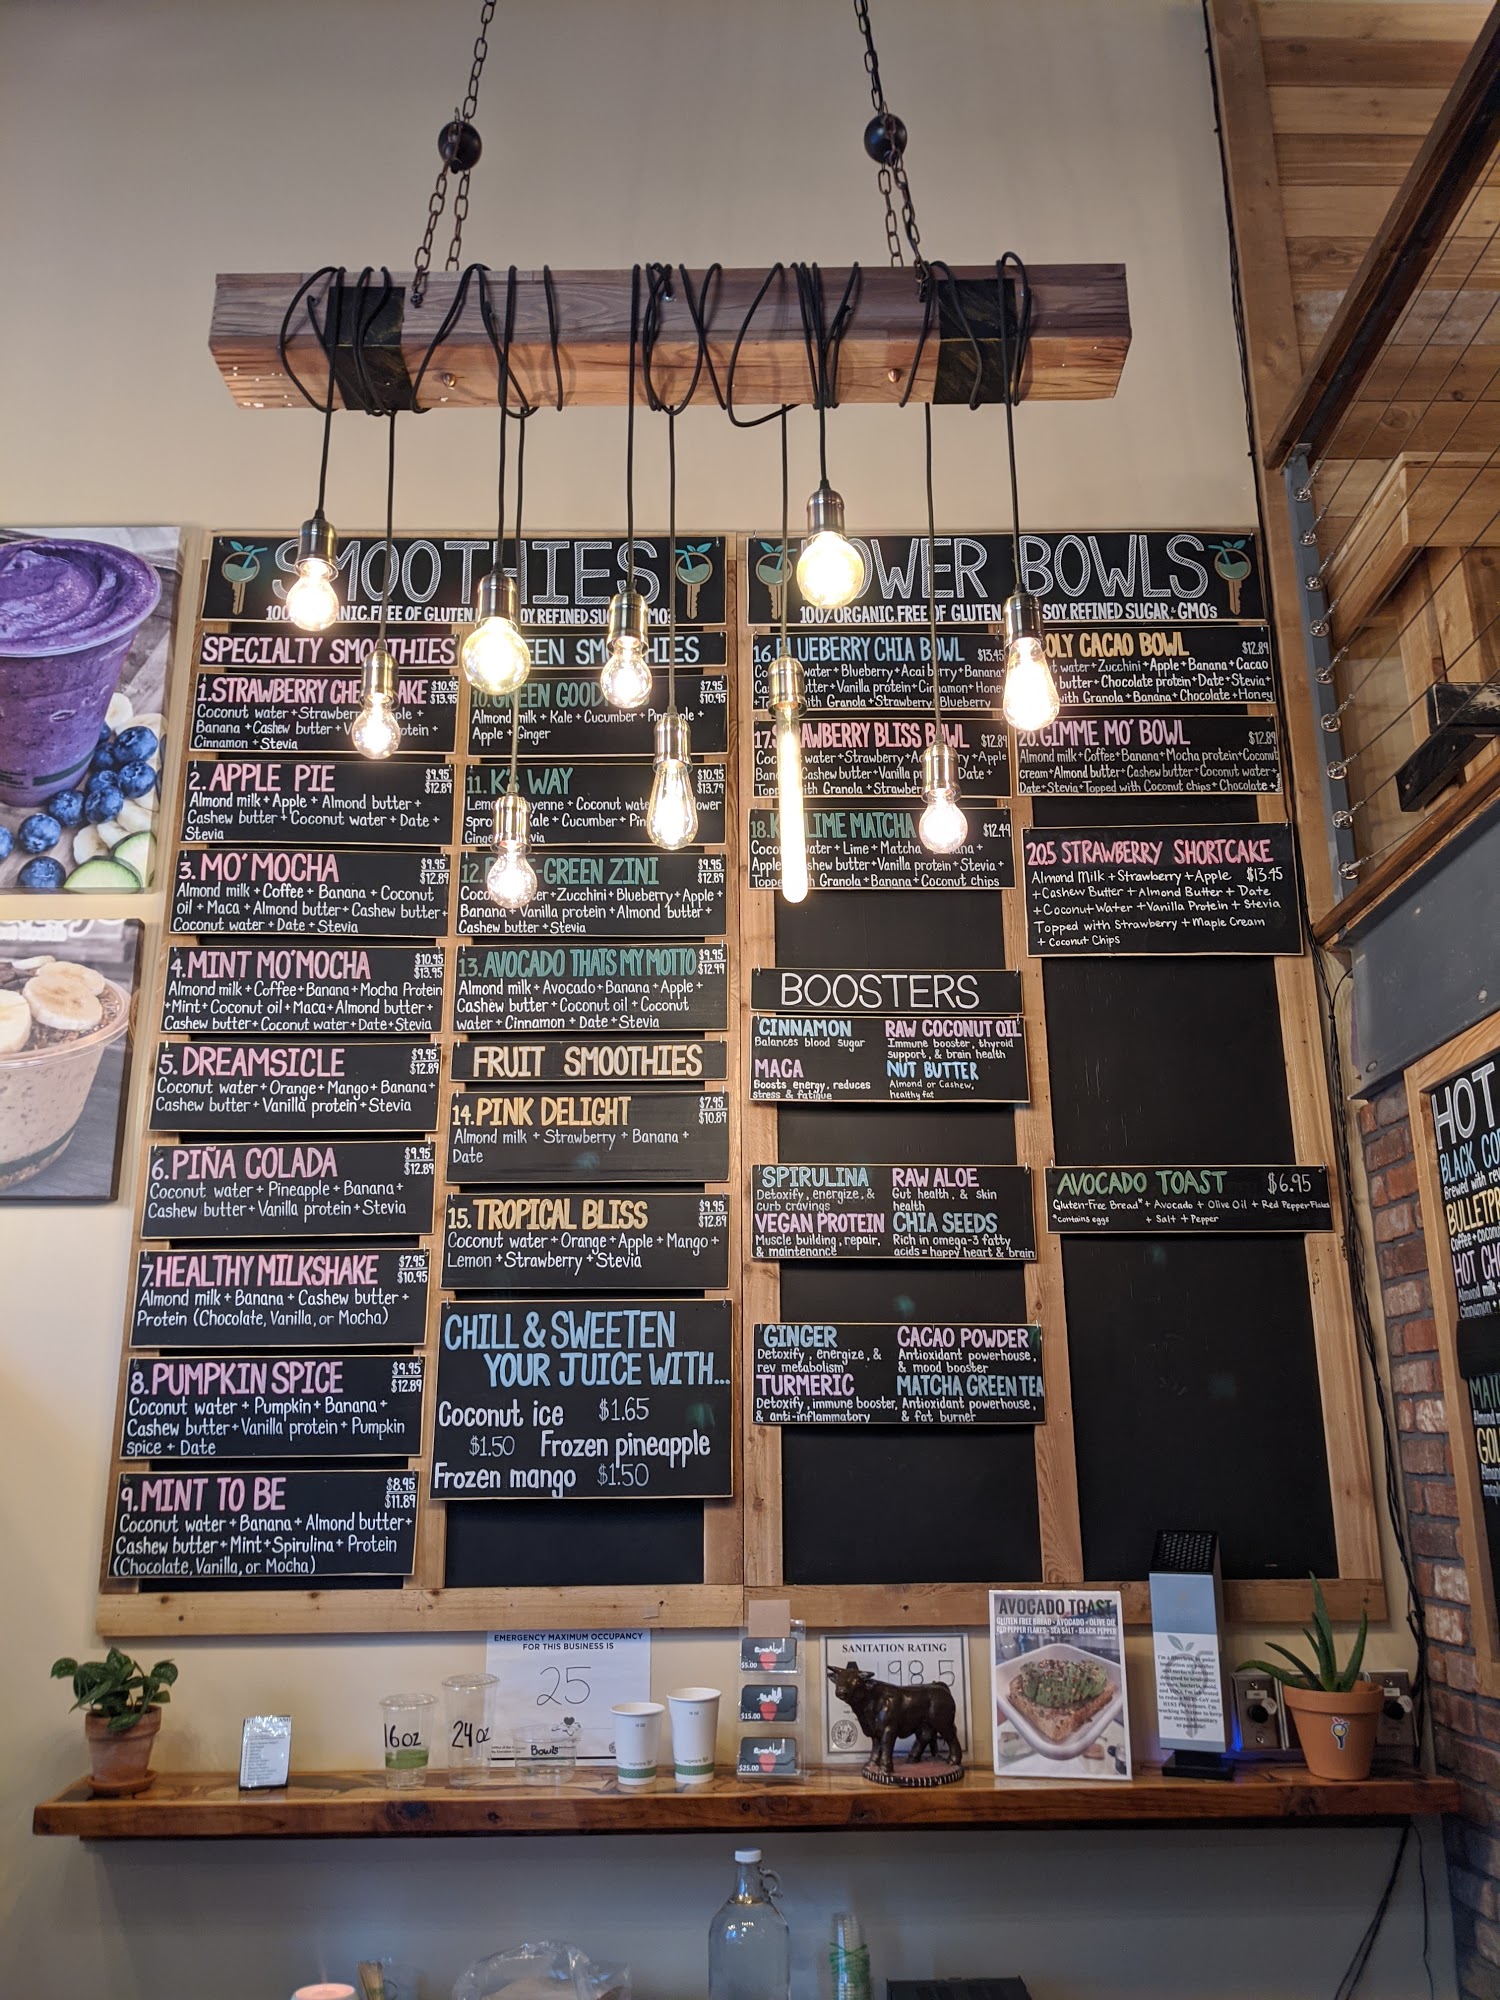 SMOOTHIES
100% ORGANIC, FREE OF GLUTEN SOY, REFINED SUGAR
SPECIALTY SMOOTHIES
1. STRAWBERRY $10.95
$13.95
Coconut water +
Banana + Cashew butter +
Cinnamon + Stevia
2. APPLE PIE $9.95
$12.89
Almond milk + Apple + Almond butter +
Cashew butter + Coconut water + Date +
Stevia
3. MO' MOCHA $9.95
$12.89
Almond milk + Coffee + Banana + Coconut
oil + Maca + Almond butter + Cashew butter +
Coconut water + Date + Stevia
4. MINT MO' MOCHA $10.95
$13.95
Almond milk + Coffee + Banana + Mocha Protein
+ Mint + Coconut oil + Maca + Almond butter +
Cashew butter + Coconut water + Date + Stevia
5. DREAMSICLE $9.95
$12.89
Coconut water + Orange + Mango + Banana +
Cashew butter + Vanilla protein + Stevia
6. PIÑA COLADA $9.95
$12.89
Coconut water + Pineapple + Banana +
Cashew butter + Vanilla protein + Stevia
7. HEALTHY MILKSHAKE $7.95
$10.95
Almond milk + Banana + Cashew butter +
Protein (Chocolate, Vanilla, or Mocha)
8. PUMPKIN SPICE $9.95
$12.89
Coconut water + Pumpkin + Banana +
Cashew butter + Vanilla protein + Pumpkin
spice + Date
9. MINT TO BE $8.95
$11.89
Coconut water + Banana + Almond butter +
Cashew butter + Mint + Spirulina + Protein
(Chocolate, Vanilla, or Mocha)
SMOOTHIES
10. GREEN $7.95
$10.95
Almond milk + Kale + Cucumber + Pineapple +
Apple + Ginger
11. WAY $10.95
$13.79
+ Coconut water
+ Cucumber +
12. GREEN ZINI $9.95
$12.89
+ Zucchini + Blueberry + Apple +
Banana + Vanilla protein + Almond butter +
Cashew butter + Stevia
13. AVOCADO THATS MY MOTTO $9.95
$12.99
Almond milk + Avocado + Banana + Apple +
Cashew butter + Coconut oil + Coconut
water + Cinnamon + Date + Stevia
FRUIT SMOOTHIES
14. PINK DELIGHT $7.95
$10.89
Almond milk + Strawberry + Banana +
Date
15. TROPICAL BLISS $9.95
$12.89
Coconut water + Orange + Apple + Mango +
Lemon + Strawberry + Stevia
CHILL & SWEETEN
YOUR JUICE WITH...
Coconut ice $1.65
$1.50 Frozen pineapple
Frozen mango $1.50
POWER BOWLS
100% ORGANIC, FREE OF GLUTEN SOY, REFINED SUGAR & GMO's
16. BLUEBERRY CHIA BOWL $13.45
water + Blueberry + Acai berry + Banana +
butter + Vanilla protein + Cinnamon + Honey
with Granola + Strawberry Blueberry
17. STRAWBERRY BLISS BOWL $12.89
water + Strawberry + Apple
Cashew butter + Vanilla Date +
with Granola +
18. LIME MATCHA $12.49
water + Lime + Matcha +
Cashew butter + Vanilla protein + Stevia +
Granola + Banana + Coconut chips
CACAO BOWL $12.89
water + Zucchini + Apple + Banana + Cacao
butter + Chocolate protein + Date + Stevia +
with Granola + Banana + Chocolate + Honey
20. GIMME MO' BOWL $12.89
Almond milk + Coffee + Banana + Mocha protein + Coconut
cream + Almond butter + Cashew butter + Coconut water +
Date + Stevia + Topped with Coconut chips + Chocolate +
20.5 STRAWBERRY SHORTCAKE
Almond Milk + Strawberry + Apple $13.45
+ Cashew Butter + Almond Butter + Date
+ Coconut Water + Vanilla Protein + Stevia
Topped with Strawberry + Maple Cream
+ Coconut Chips
BOOSTERS
CINNAMON
Balances blood sugar
RAW COCONUT OIL
Immune booster, thyroid
support, & brain health
MACA
Boosts energy, reduces
stress & fatigue
NUT BUTTER
Almond or Cashew,
healthy fat
SPIRULINA
Detoxify, energize, &
curb cravings
RAW ALOE
Gut health, & skin
health
VEGAN PROTEIN
Muscle building, repair,
& maintenance
CHIA SEEDS
Rich in omega-3 fatty
acids = happy heart & brain
GINGER
Detoxify, energize, &
rev metabolism
CACAO POWDER
Antioxidant powerhouse,
& mood booster
TURMERIC
Detoxify, immune booster,
& anti-inflammatory
MATCHA GREEN TEA
Antioxidant powerhouse,
& fat burner
AVOCADO TOAST $6.95
Gluten-Free Bread* + Avocado + Olive Oil + Red Pepper Flakes
*contains eggs + Salt + Pepper
HOT
BLACK CO
Brewed with
BULLETPR
Coffee +
HOT CH
Almond milk +
Cinnamon +
Almond
GOL
EMERGENCY MAXIMUM OCCUPANCY
FOR THIS BUSINESS IS
25
16oz
24oz
Bowls
$5.00
$15.00
$25.00
SANITATION RATING
98.5
AVOCADO TOAST
GLUTEN FREE BREAD - AVOCADO - OLIVE OIL
RED PEPPER FLAKES - SEA SALT - BLACK PEPPER